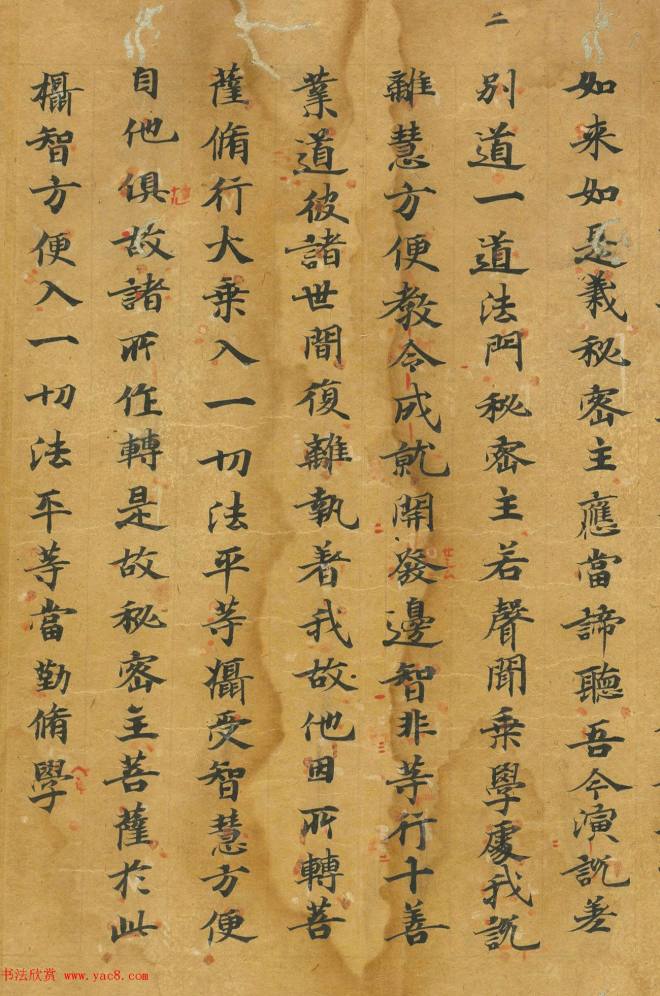 二
如来如是義秘密主應當諦聽吾今演說差
別道一道法門秘密主若聲聞乘學處我說
離慧方便教令成就開發邊智非等行十善
業道彼諸世間復離執著我故他因所轉菩
薩脩行大乘入一切法平等攝受智慧方便
自他俱故諸所作轉是故秘密主菩薩於此
攝智方便入一切法平等當勤脩學
书法欣赏 www.yac8.com